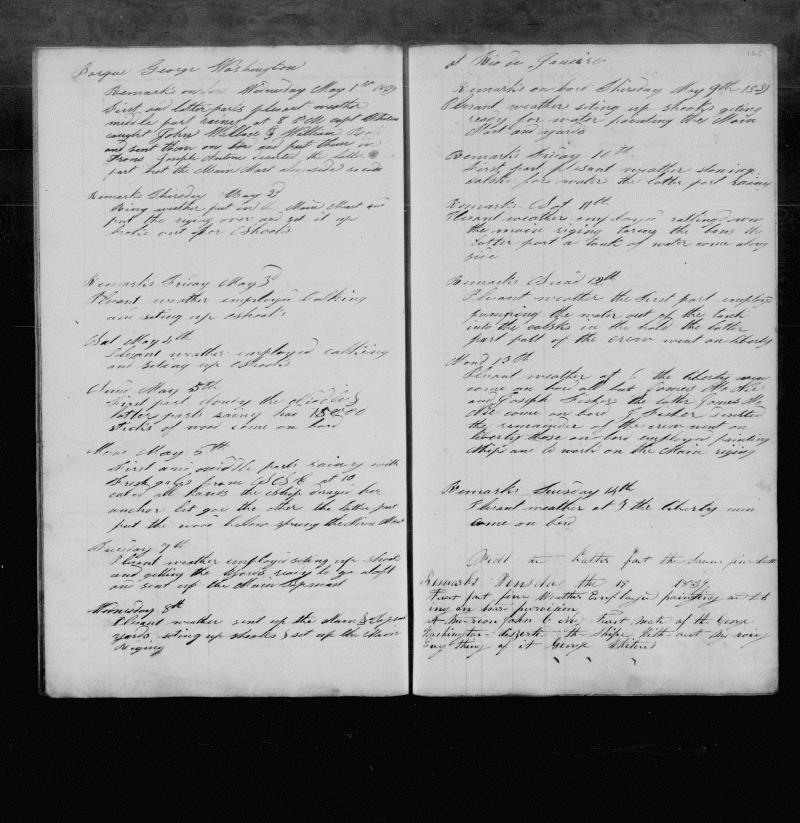 Barque George Washington
Remarks on bord Wensday May 1st 1839
First and latter parts plesant weather
middle part rainy at 8 PM capt
caught John Wallace & William
and sent them on bord and put them in
Irons Joseph Antone deserted the latter
part got the Main Mast along side
Remarks Thirsday May 2
Rainy weather put in the Main Mast and
put the riging over and set it up
broke out for Shooks
Remarks Friday May 3d
Plesant weather employed Calking
and seting up shooks
Sat May 4th
Plesant weather employed calking
and seting up Shooks
Sund May 5th
First part cloudy the middle &
latter parts rainy had 15000
sticks of wood come on bord
Mond May 6th
First and middle parts rainy with
Fresh gales from SSE at 10
called all hands the Ship draged her
anchor let goe the other the latter part
put the wood below sprung the
Tuesday 7th
Plesant weather employed seting up shooks
and geting the Yards ready to go aloft
and sent up the Main Topmast
Wensday 8th
Plesant weather sent up the Main & Topsail
yards seting up shooks & set up the Main
Riging
at Rio de Janeiro
125
Remarks on bord Thirsday May 9th 1839
Plesant weather seting up shooks geting
ready for water painting the Main
Mast and yards
Remarks Friday 10th
First part plesant weather stoning
casks for water the latter part rainy
Remarks Sat 11th
Plesant weather employed ratling down
the main riging taring the
latter part a tank of water come along
side
Remarks Sund 12th
Plesant weather the first part employed
pumping the water out of the tank
into the casks in the hold the latter
part part of the crew went on liberty
Mond 13th
Plesant weather at 6 the liberty men
come on bord all but James
and Joseph Fisher the latter James Mc
come on bord J Fisher deserted
the remainder of the crew went on
liberty those on bord employed painting
ship and to work on the Main riging
Remarks Tuesday 14th
Plesant weather at 7 the liberty men
come on bord
Midle and Latter part the Same fine
Remarks Wensday the 15 1839
First part fine Weather Employed painting and
ing on bord
John C First Mate of the George
Washington deserted the Ship With out
Eney thing of it George